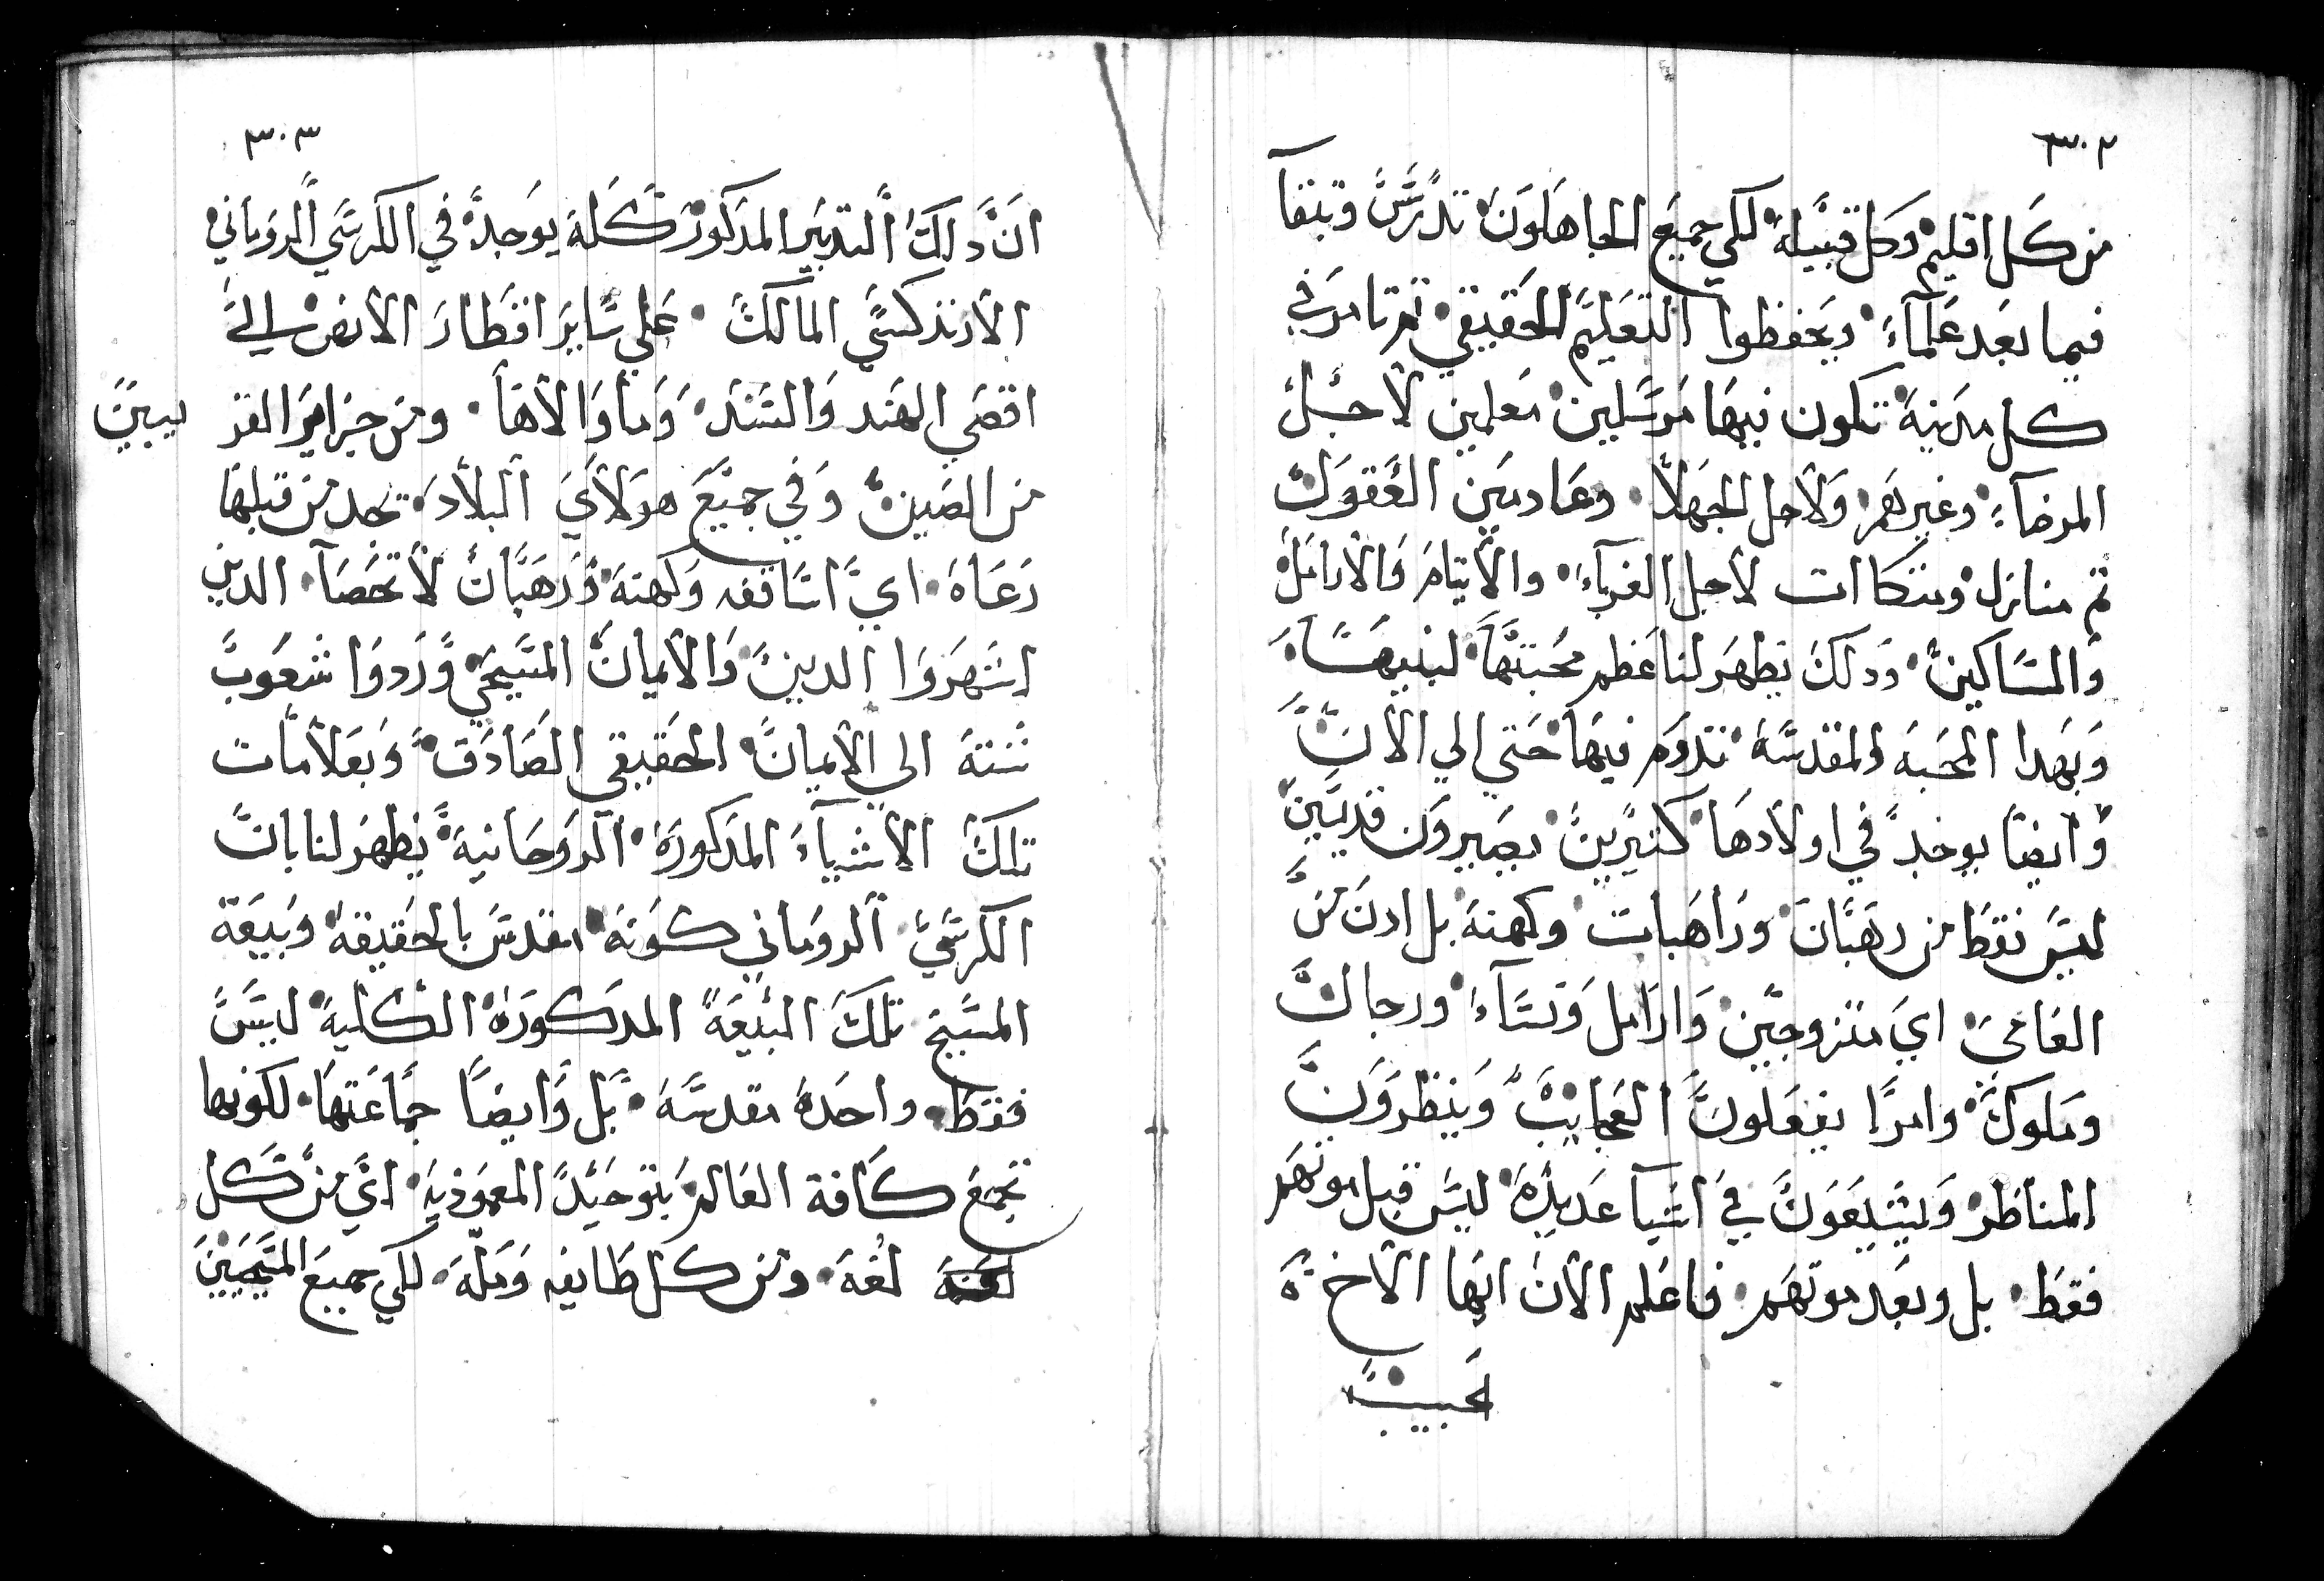 ٣٠٢
من كل اقليم وكل قبيله لكي جميع الجاهلون تدرس وتبقا
فيما بعد علماء ويحفظوا التعليم الحقيقي ثم تامر في
كل مدينة تكون فيها مرسلين معلمين لاجل
المرضاء وغيرهم ولاجل الجهلا وعادمين العقول
ثم منازل ومتكاات لاجل الغرباء والايتام والارامل
والمساكين وذلك يظهر لنا عظم محبتها لبنيها
وبهدا المحبه المقدسه تدوم فيها حتي الي الان
وايضا يوجد في اولادها كتيرين يصيرون قديسين
ليس فقط من رهبان وراهبات وكهنة بل ادن من
العامي اي متزوجين وارامل ونساء ورجال
وملوك وامرا يفعلون العجايب وينظرون
المناظر ويشيعون في اشيا عديده ليس قبل موتهم
فقط بل وبعد موتهم فاعلم الان ايها الاخ
لحبيب
٣٠٣
ان دلك التدبير المدكور كله يوجد في الكرسي الروماني
الارتدكسي المالك علي ساير اقطار الارض الي
اقصي الهند والسند وما والاها ومن جزاير الفز ليبين
من الصين وفي جميع هولاي البلاد تجد من قبلها
رعاه اي اساقفه وكهنة ورهبان لا تحصا الدين
اشهروا الدين والايمان المسيحي وردوا شعوب
شتة الي الايمان الحقيقي الصادق وبعلامات
تلك الاشياء المدكوره الروحانية يظهر لنا بان
الكرسي الروماني كونه مقدس بالحقيقة وبيعة
المسيح تلك البيعة المدكوره الكلية ليس
فقط واحده مقدسه بل وايضا جماعتها لكونها
تجمع كافة العالم بتوحيد المعموذيه اي من كل
لغة ومن كل طايفه ومله لكي جميع المسيحيين